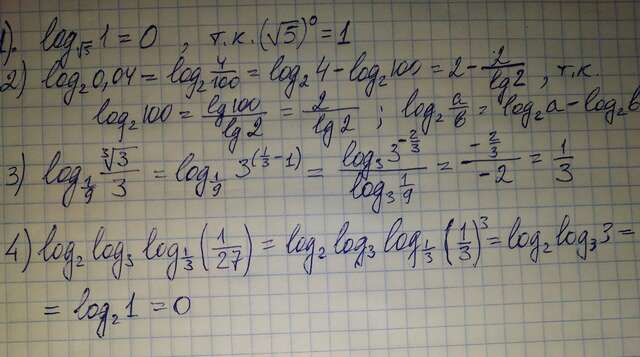 1). log_√5 1 = 0 , т.к. (√5)⁰ = 1
2) log₂ 0,04 = log₂ 4/100 = log₂ 4 − log₂ 100 = 2 − 2/lg2 , т.к.
log₂ 100 = lg100/lg2 = 2/lg2 ; log₂ a/b = log₂ a − log₂ b
3) log_1/9 ∛3/3 = log_1/9 3^(1/3 − 1) = log₃ 3^(−2/3) / log₃ 1/9 = (−2/3)/(−2) = 1/3
4) log₂ log₃ log_1/3 (1/27) = log₂ log₃ log_1/3 (1/3)³ = log₂ log₃ 3 =
= log₂ 1 = 0